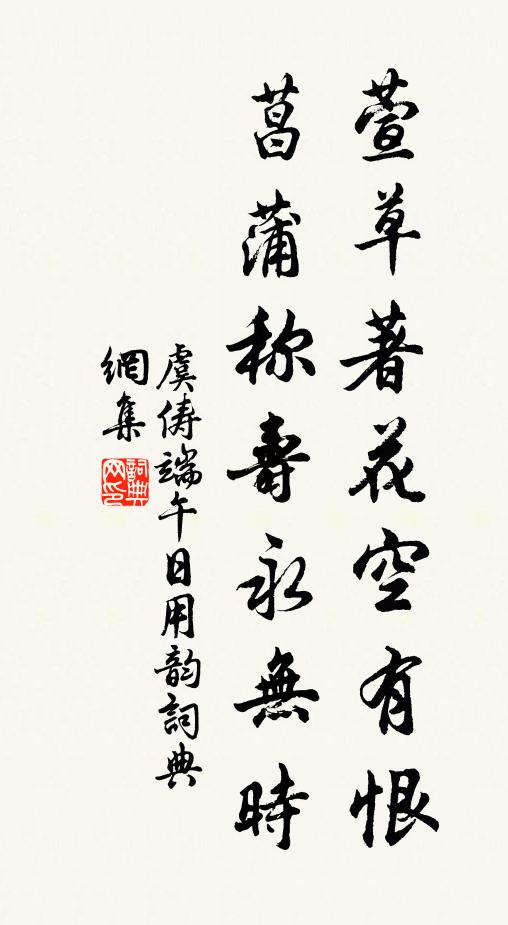 萱草著花空有恨
菖蒲称壽永無時
虞俦端午日用韵詞典
網集
詞典网印